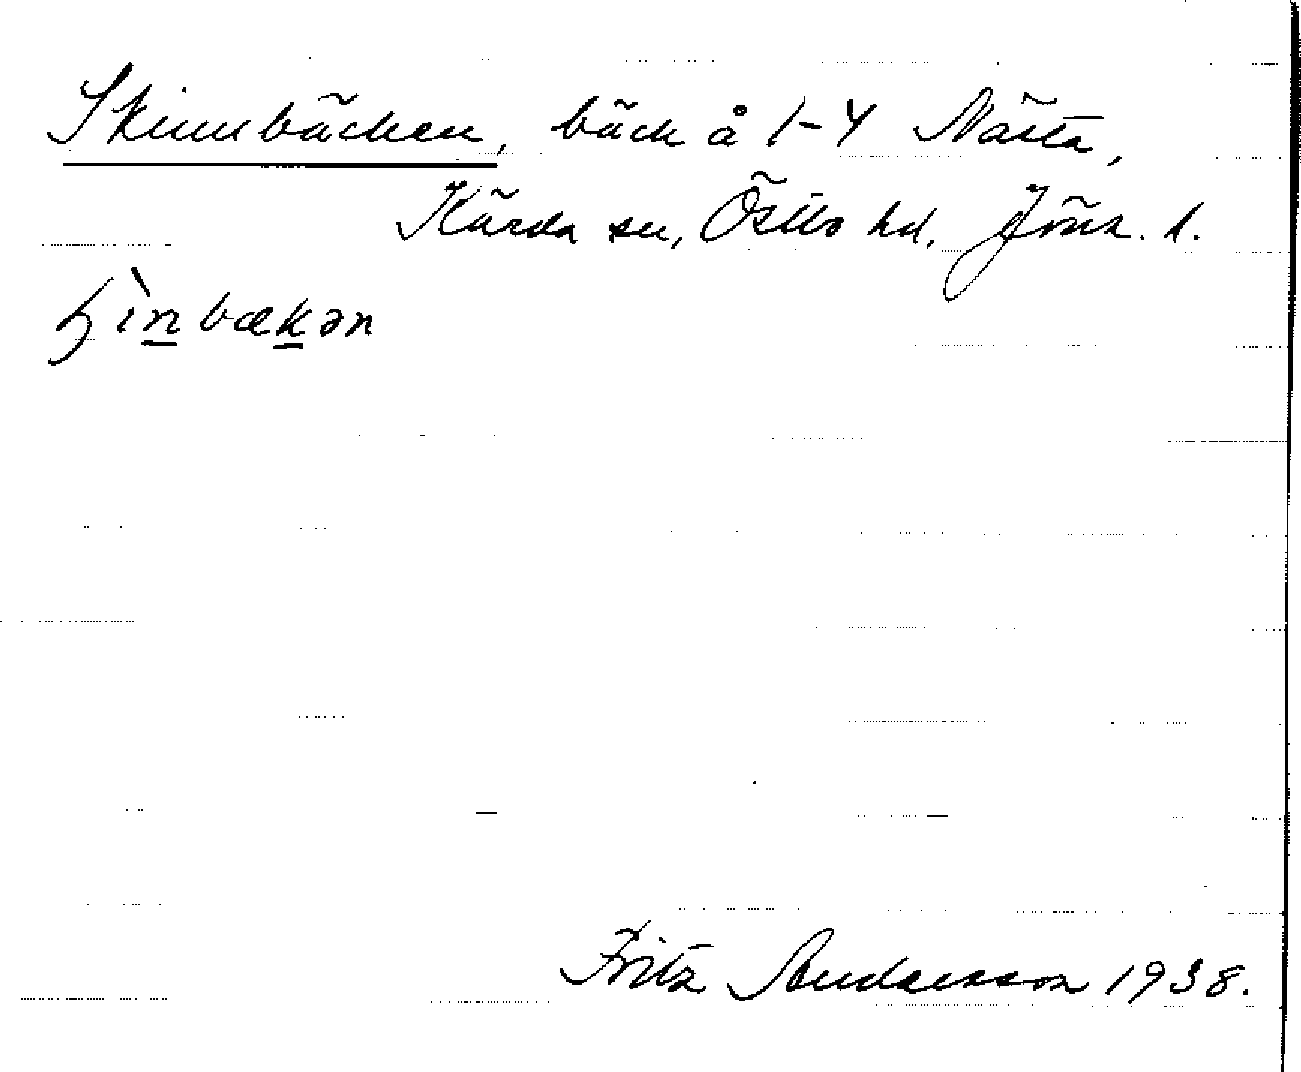 Skinnbäcken, bäck å 1-4 Nästa,
Kärda sn, Östbo hd, Jönk. l.
ɧìn̲bæk̲ən
Fritz Andersson 1938.